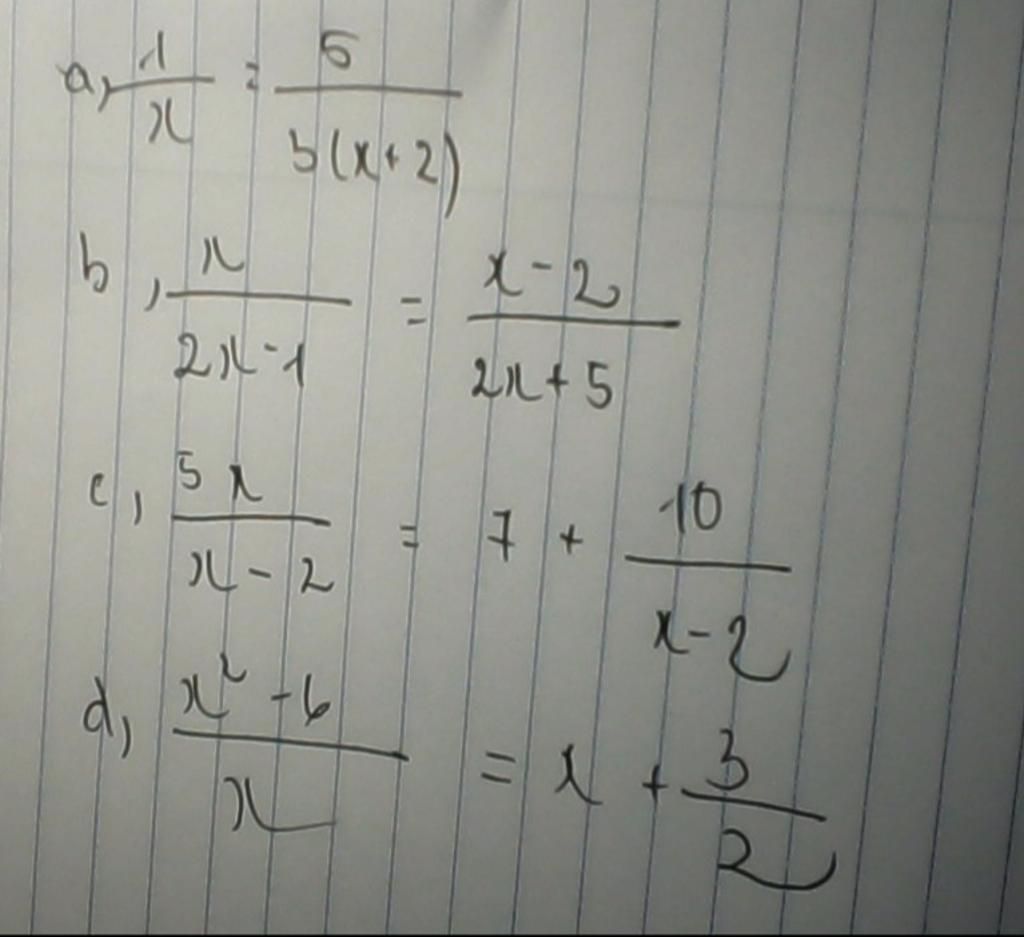 a, 1/x = 5/b(x+2)
b, x/2x-1 = x-2/2x+5
c, 5x/x-2 = 7 + 10/x-2
d, x²-6/x = x + 3/2